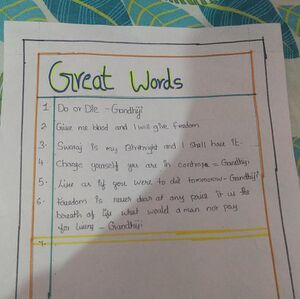 Great Words
1. Do or Die - Gandhiji
2. Give me blood and I will give freedom
3. Swaraj is my Birthright and I shall have it.
4. Change yourself you are in control - Gandhiji
5. Live as if you were to die tomorrow - Gandhiji
6. freedom is never dear at any price it is the
breath of life what would a man not pay
for living - Gandhiji
7.